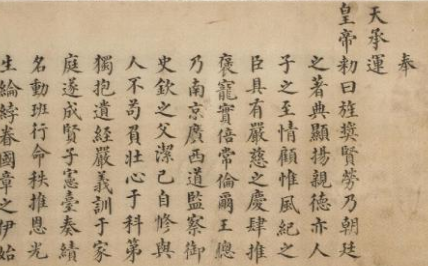 奉
天承運
皇帝勅曰旌奬賢勞乃朝廷
之著典顯揚親德亦人
子之至情顧惟風紀之
臣具有嚴慈之慶肆推
褒寵實倍常倫爾王總
乃南京廣西道監察御
史欽之父潔己自修與
人不苟負壯心于科第
獨抱遺經嚴義訓于家
庭遂成賢子憲臺奏績
名動班行命秩推恩光
生綸綍眷國章之伊始